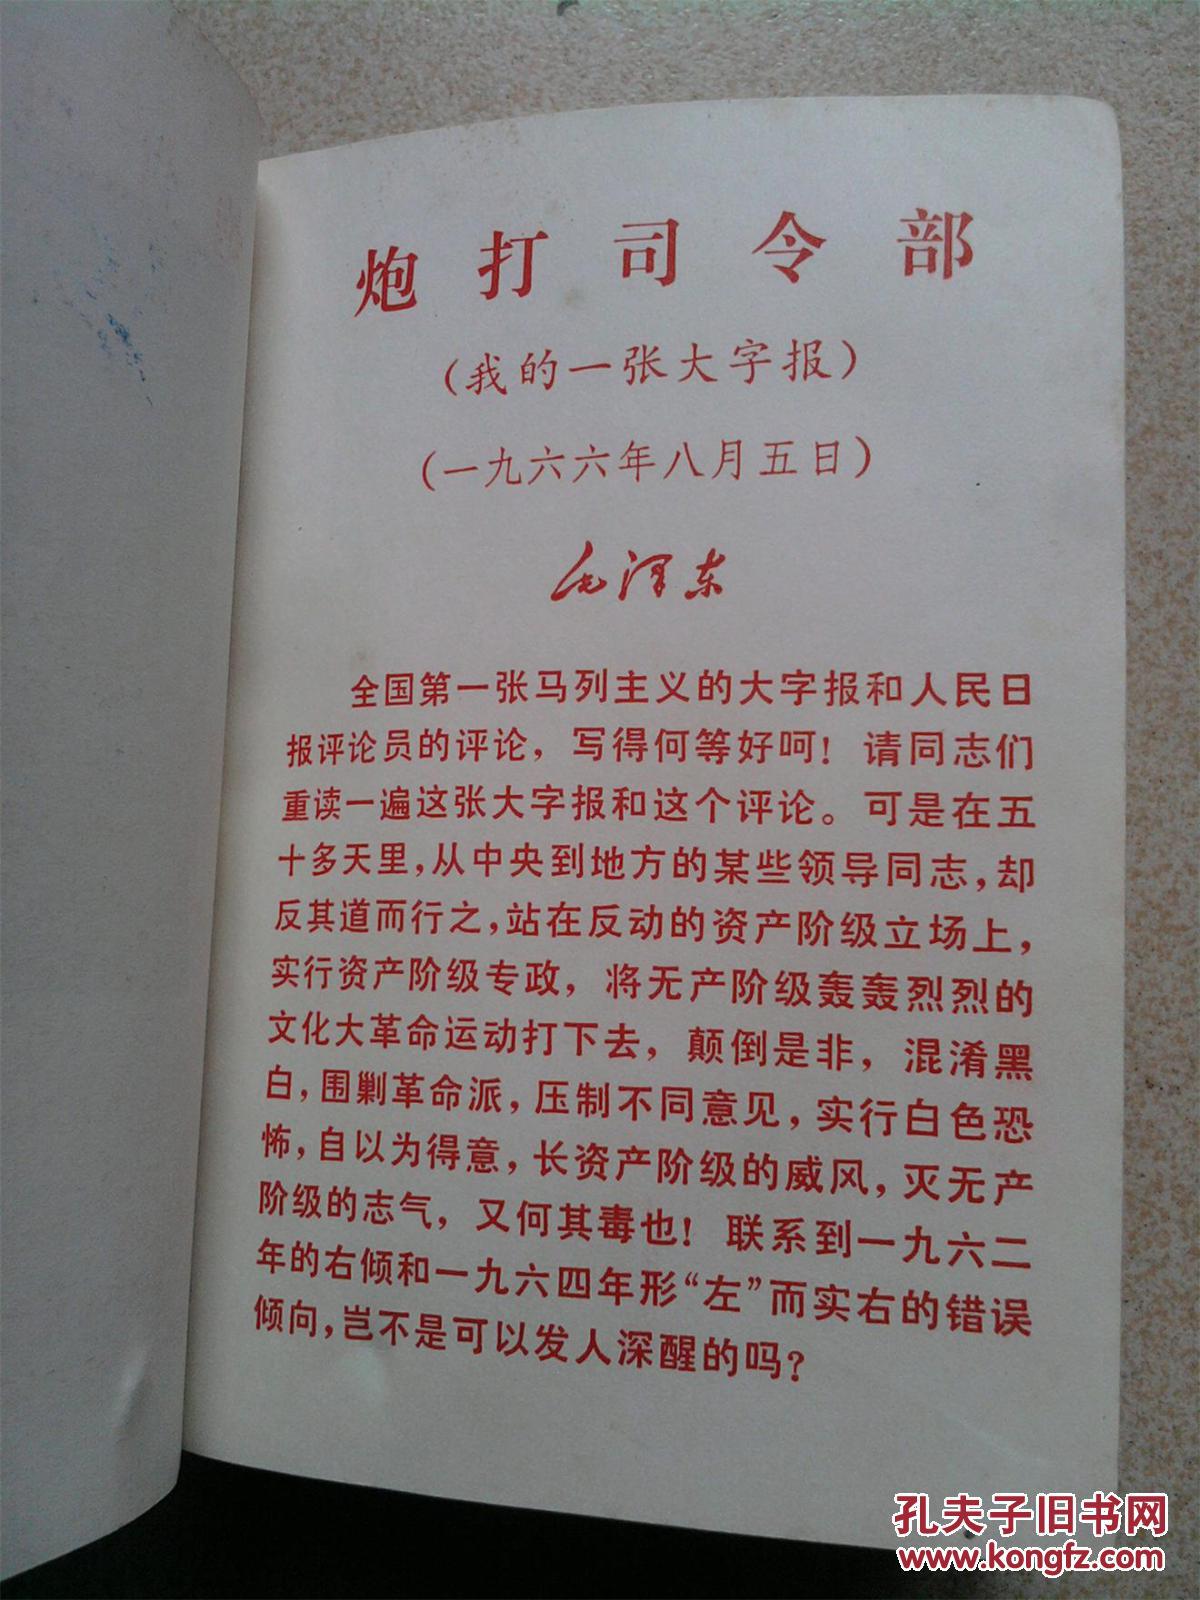 炮打司令部
（我的一张大字报）
（一九六六年八月五日）
毛泽东
全国第一张马列主义的大字报和人民日
报评论员的评论，写得何等好呵！请同志们
重读一遍这张大字报和这个评论。可是在五
十多天里，从中央到地方的某些领导同志，却
反其道而行之，站在反动的资产阶级立场上，
实行资产阶级专政，将无产阶级轰轰烈烈的
文化大革命运动打下去，颠倒是非，混淆黑
白，围剿革命派，压制不同意见，实行白色恐
怖，自以为得意，长资产阶级的威风，灭无产
阶级的志气，又何其毒也！联系到一九六二
年的右倾和一九六四年形“左”而实右的错误
倾向，岂不是可以发人深醒的吗？
孔夫子旧书网
www.kongfz.com